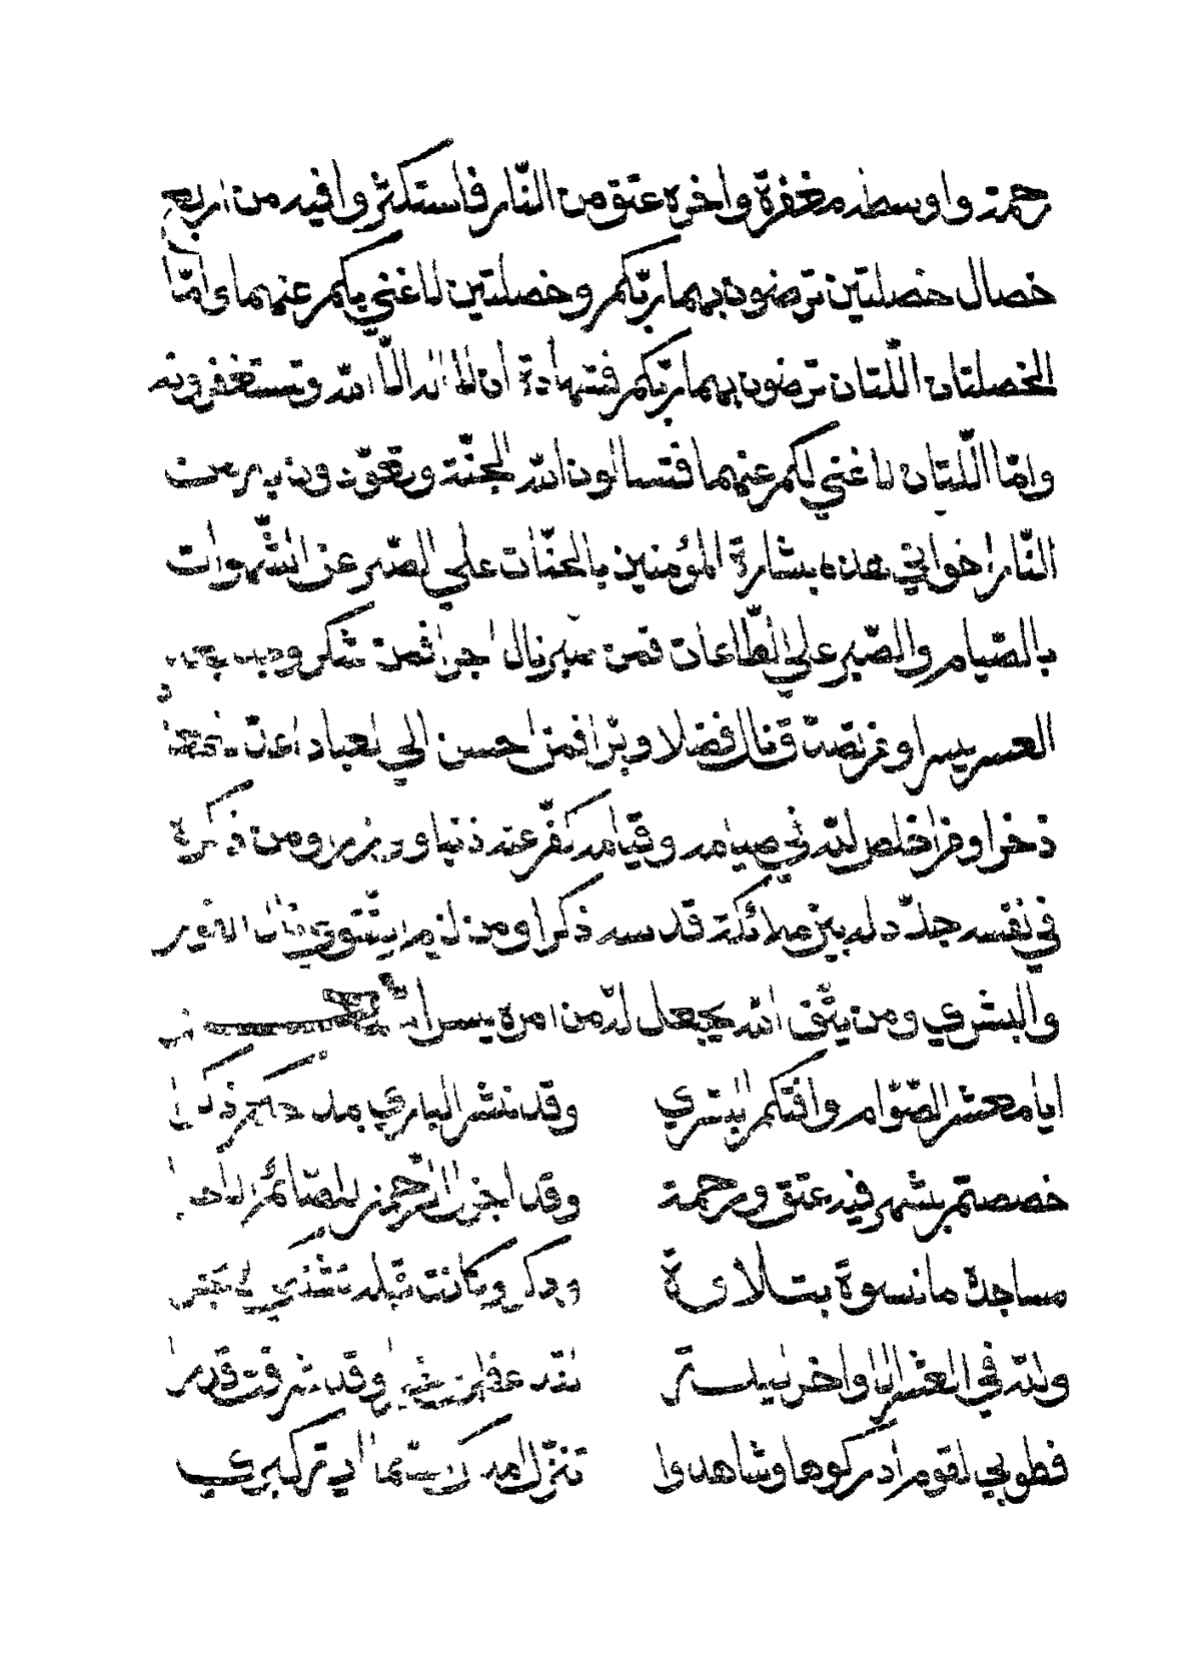 رحمة واوسطه مغفرة واخره عتق من النار فاستكثروا فيه من اربع
خصال خصلتين ترضون بهما ربكم وخصلتين لا غني بكم عنهما اما
الخصلتان اللتان ترضون بهما ربكم فشهادة ان لا اله الا الله وتستغفرونه
واما اللتان لا غني لكم عنهما فتسالون الله الجنة وتعوذون به من
النار اخواني هذه بشارة المؤمنين بالجنات علي الصبر عن الشهوات
بالصيام والصبر علي الطاعات فمن صبر نال اجرا فمن شكر وجد
العسر يسرا ومن تصدق نال فضلا وبرا فمن احسن الي العباد
ذخرا ومن اخلص لله في صيامه وقيامه كفر عنه ذنبا ووزرا ومن ذكره
في نفسه جدد له بين ملائكة قدسه ذكرا ومن لزم التقوي نال الفوز
والبشري ومن يتق الله يجعل له من امره يسرا
ايا معشر الصوام وافتكم البشري وقد نشر الباري لكم ذكرا
خصصتم بشهر فيه عتق ورحمة وقد اجزل الرحمن للصائم الاجرا
مساجده مانسوة بتلاوة وذكر وكانت قبله تشتكي
ولله في العشر الاواخر ليلة لقد عظمت وقد شرفت قدرا
فطوبي لقوم ادركوها وشاهدوا تنزل املاك السما اية كبري